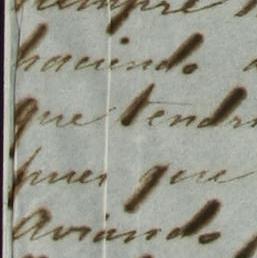 siempre
haciendo
que tendr
pues que
aviando